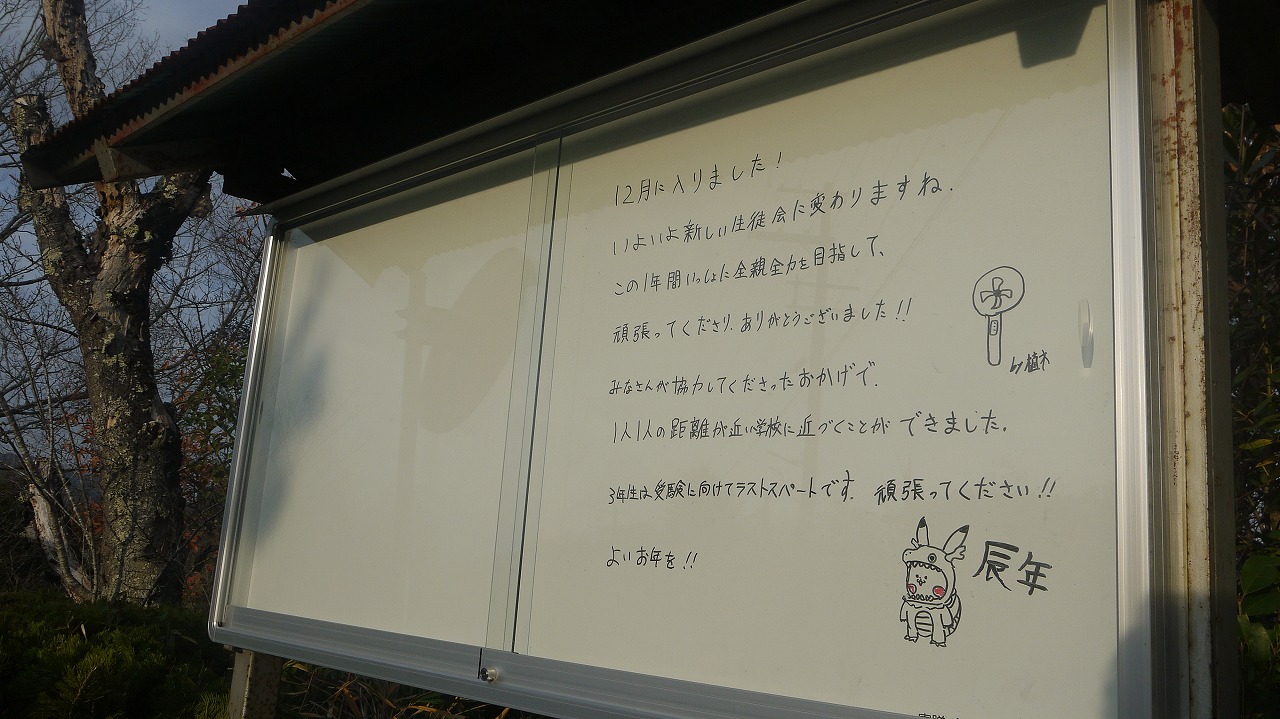 12月に入りました!
いよいよ新しい生徒会に変わりますね.
この1年間いっしょに全親全力を目指して、
頑張ってくださり、ありがとうございました!!
by 植木
みなさんが協力してくださったおかげで、
1人1人の距離が近い学校に近づくことができました.
3年生は受験に向けてラストスパートです. 頑張ってください!!
よいお年を!!
辰年